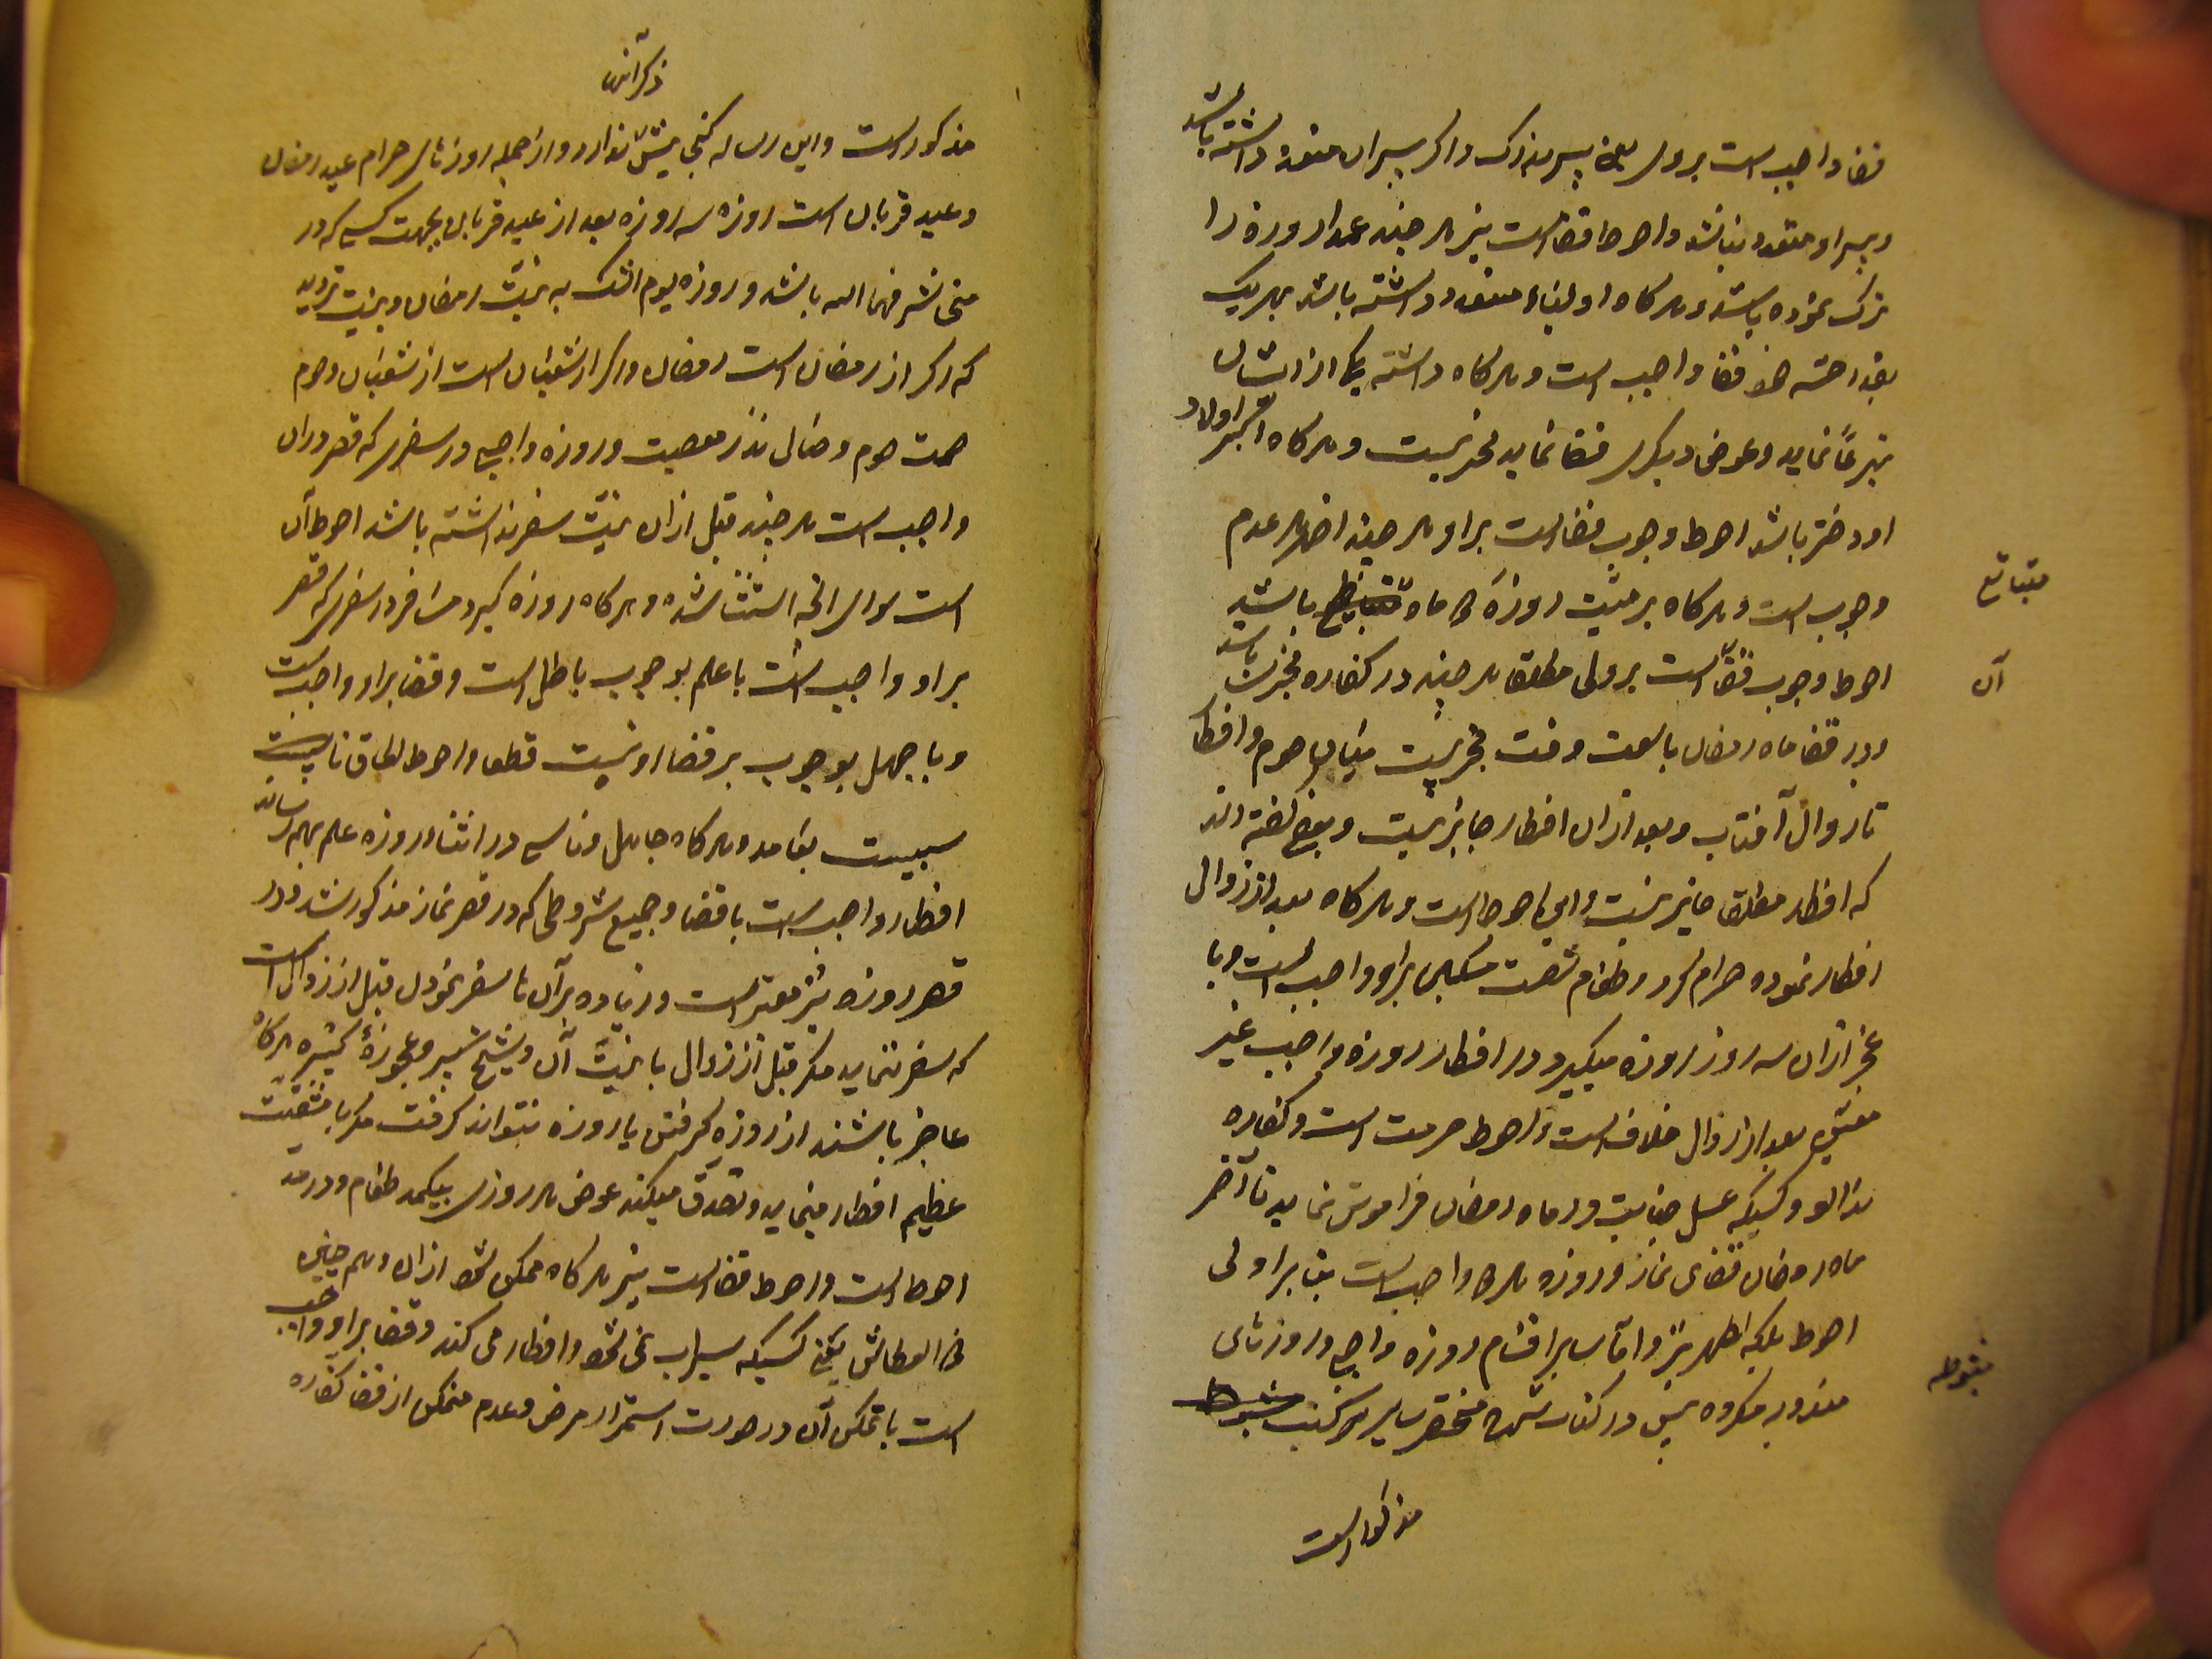 قضا واجب است بر ولی یعنی پسر بزرک و اکر پسران متعدد داشته باشد
و پسر او متعدد نباشد و احوط قضا است نیز هر چند عمدا روزه را
ترک نموده باشد و هر کاه اولیاء متعدد داشته باشد بر هر یک
بقدر حصه خود قضا واجب است و هر کاه داشته یکی از ایشان
تبرعاً نماید و عوض دیکری قضا نماید مجزیست و هر کاه اکبر اولاد
او دختر باشد احوط وجوب قضا است بر او هر چند اظهر عدم
وجوب است و هر کاه بر میت روزه دو ماه متتابع باشد
احوط وجوب قضا آن است بر ولی مطلقا هر چند در کفاره مخیره باشد
و در قضا ماه رمضان با سعت وقت مخیر است میان صوم و افطار
تا زوال آفتاب و بعد از ان افطار جایز نیست و بعضی کفته اند
که افطار مطلقا جایز نیست و این احوط است و هر کاه بعد از زوال
افطار نموده حرام کرده و طعام شصت مسکین بر او واجب است و با
عجز از ان سه روز روزه میکیرد و در افطار روزه واجب غیر
معین بعد از زوال خلاف است و احوط حرمت است و کفاره
ندارد و کسیکه غسل جنابت در ماه رمضان فراموش نماید تا آخر
ماه رمضان قضای نماز و روزه هر دو واجب است بنا بر اولی
احوط بلکه اظهر نیز و اما سایر اقسام روزه واجبی و روزهای
مندوب و مکروه پس در کتاب شرح مختصر و سایر کتب مبسوطه
مذکور است
متتابع
آن
مبسوطه
ذکر آنها
مذکور است و این رساله کنجایش ندارد و از جمله روزهای حرام عید رمضان
و عید قربان است و روزه سه روزه بعد از عید قربان بجهت کسی که در
منی مشرفها الله باشد و روزه یوم الشک به نیت رمضان و به نیت تردید
که اکر از رمضان است رمضان و اکر از شعبان است از شعبان و صوم
صمت و صوم وصال و نذر معصیت و روزه واجبی در سفری که قصر در ان
واجب است هر چند قبل از ان نیت سفر نداشته باشد احوط آن
است سوای انچه استثنا شده و هر کاه روزه کیرد مسافر در سفری که قصر
بر او واجب است با علم بوجوب باطل است و قضا بر او واجب است
و با جهل بوجوب بر قضا او نیست قطعا و احوط الحاق ناسیست
بعامد و هر کاه جاهل و ناسی در اثناء روزه علم بهم رساند
افطار واجب است با قضا و جمیع شروطی که در قصر نماز مذکور شد در
قصر روزه نیز معتبر است و زیاده بر آن تا سفر نمودن قبل از زوال است
که سفر ننماید مکر قبل از زوال با نیت آن و شیخ کبیر و عجوزه کبیره هر کاه
عاجز باشند از روزه کرفتن یا روزه نتواند کرفت مکر با مشقت
عظیم افطار مینماید و تصدق میکند عوض هر روزی بیکمد طعام و دو مد
احوط است و احوط قضا است نیز هر کاه ممکن شود از ان و هم چنین
ذی العطاش یعنی کسیکه سیراب نمی شود افطار می کند و قضا بر او واجب
است با تمکن آن و در صورت استمرار مرض و عدم تمکن از قضا کفاره